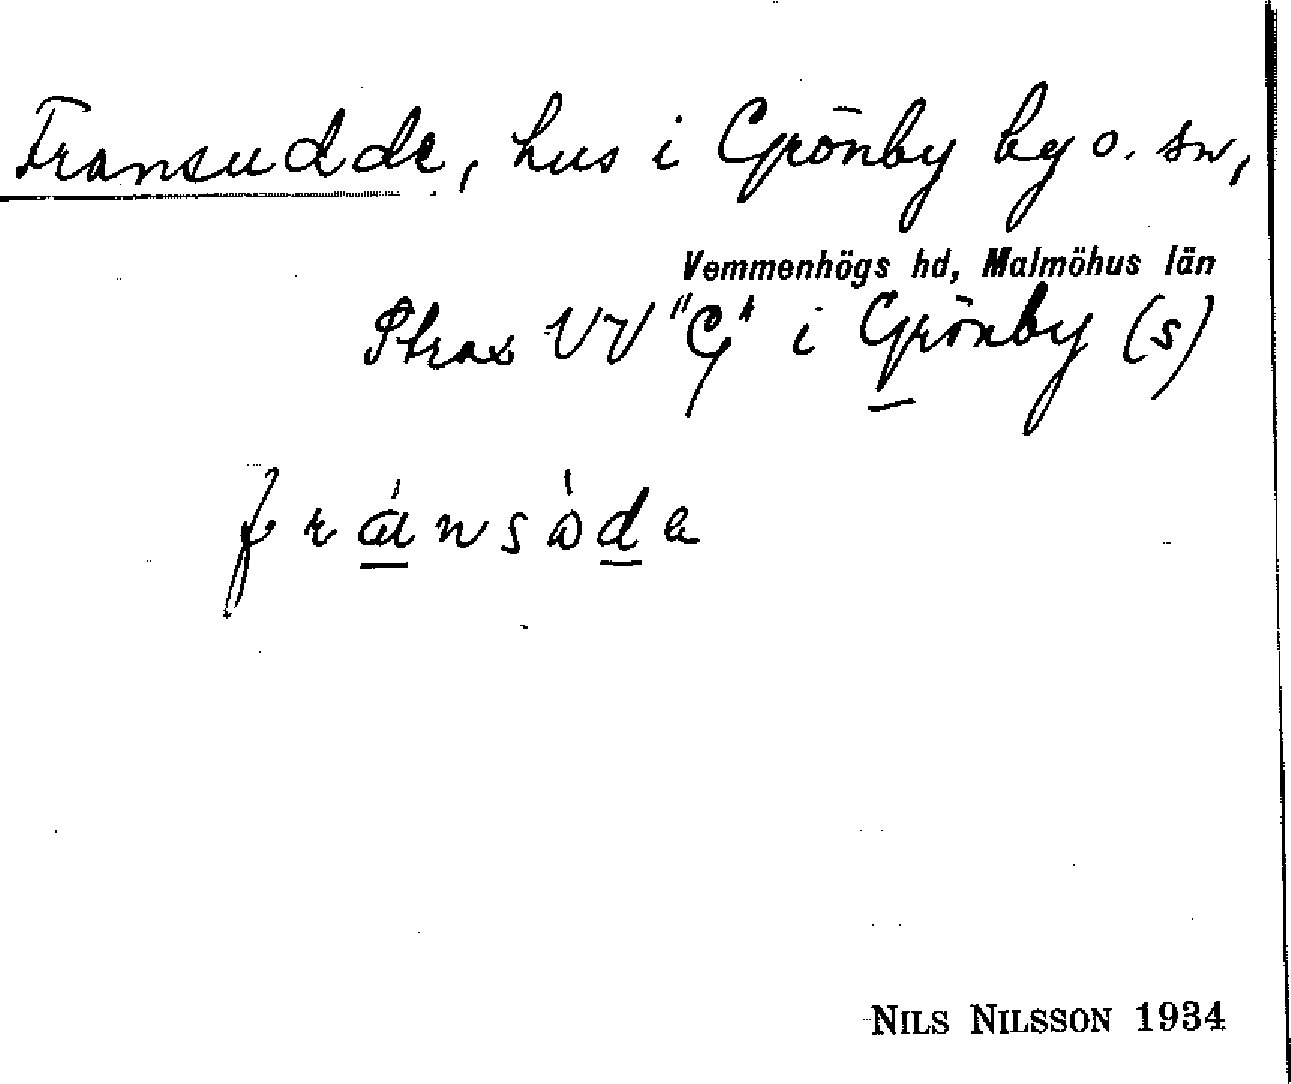 Fransudde, hus i Grönby by o. sn,
Vemmenhögs hd, Malmöhus län
Strax VV "G" i Grönby (s)
fránsòda
NILS NILSSON 1934